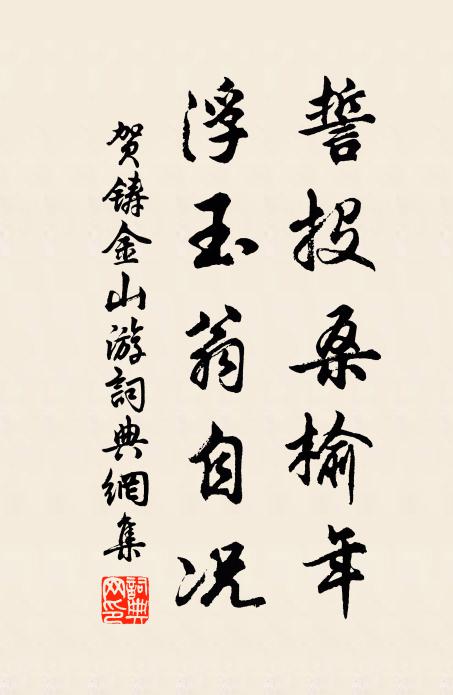 誓投桑榆年
浮玉翁自况
贺鋳金山游詞典網集
詞典网印